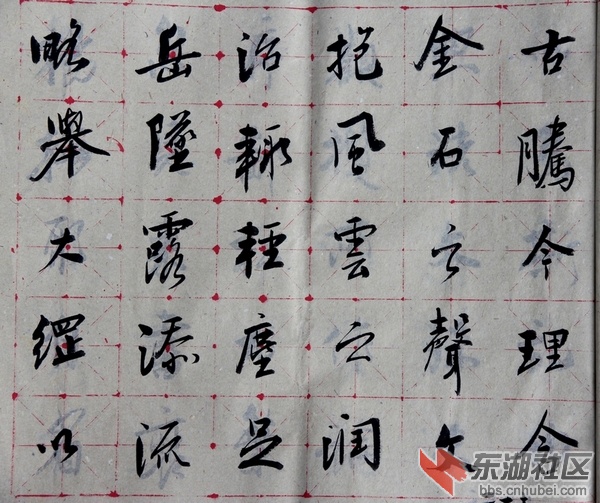 古騰今理含
金石之聲文
抱風雲之潤
治輙輕塵足
岳墜露添流
略舉大綱以
东湖社区
bbs.cnhubei.com